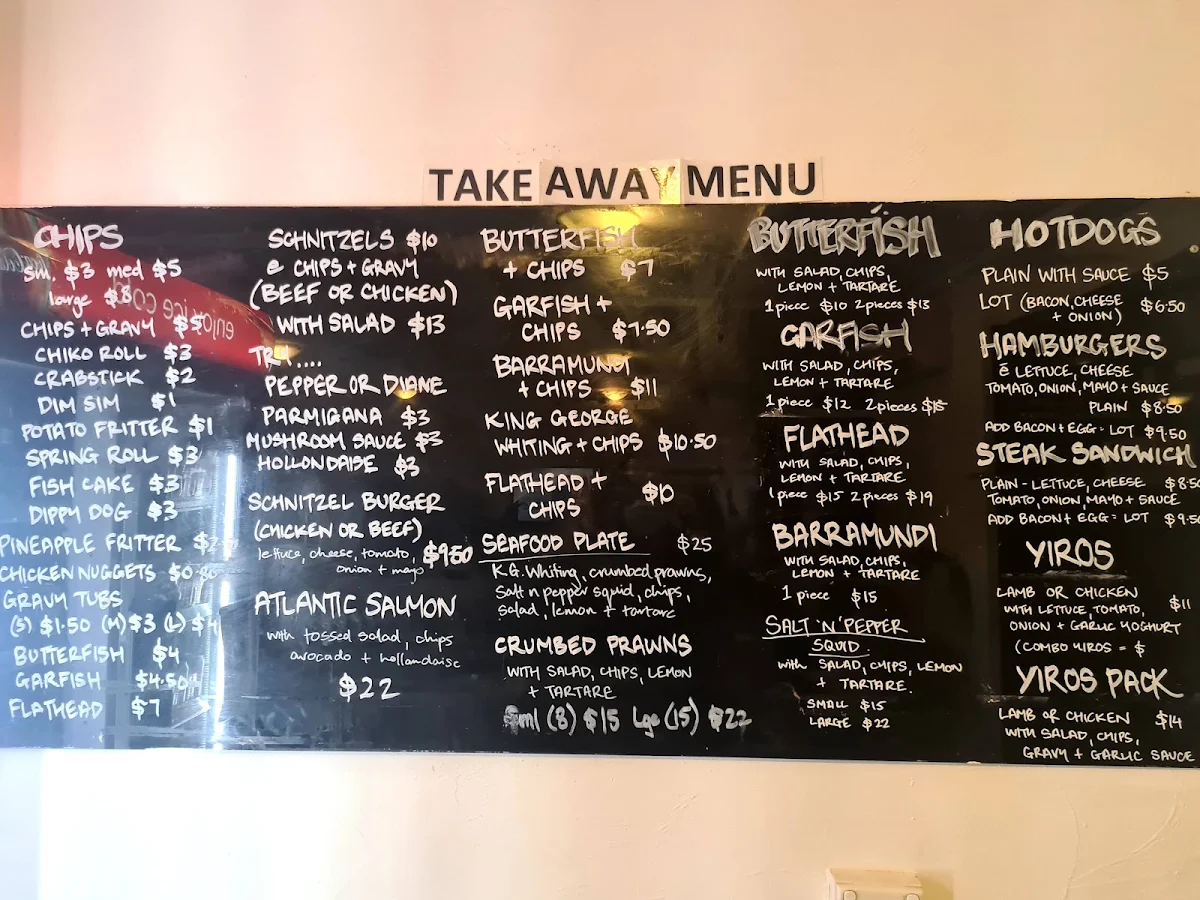 TAKE AWAY MENU
CHIPS
sm. $3 med $5
large $8
CHIPS + GRAVY $5
CHIKO ROLL $3
CRABSTICK $2
DIM SIM $1
POTATO FRITTER $1
SPRING ROLL $3
FISH CAKE $3
DIPPY DOG $3
PINEAPPLE FRITTER
CHICKEN NUGGETS
GRAVY TUBS
(S) $1.50 (M) $3 (L) $4
BUTTERFISH $4
GARFISH $4.50
FLATHEAD $7
SCHNITZELS $10
c̄ CHIPS + GRAVY
(BEEF OR CHICKEN)
WITH SALAD $13
TRY....
PEPPER OR DIANE
PARMIGANA $3
MUSHROOM SAUCE $3
HOLLONDAISE $3
SCHNITZEL BURGER
(CHICKEN OR BEEF)
lettuce, cheese, tomato, $9.50
onion + mayo
ATLANTIC SALMON
with tossed salad, chips
avocado + hollandaise
$22
BUTTERFISH
+ CHIPS $7
GARFISH +
CHIPS $7.50
BARRAMUNDI
+ CHIPS $11
KING GEORGE
WHITING + CHIPS $10.50
FLATHEAD + $10
CHIPS
SEAFOOD PLATE $25
K.G. Whiting, crumbed prawns,
Salt n pepper squid, chips,
salad, lemon + tartare
CRUMBED PRAWNS
WITH SALAD, CHIPS, LEMON
+ TARTARE
Sml (8) $15 Lge (15) $22
BUTTERFISH
WITH SALAD, CHIPS,
LEMON + TARTARE
1 piece $10 2 pieces $13
GARFISH
WITH SALAD, CHIPS,
LEMON + TARTARE
1 piece $12 2 pieces $15
FLATHEAD
WITH SALAD, CHIPS,
LEMON + TARTARE
1 piece $15 2 pieces $19
BARRAMUNDI
WITH SALAD, CHIPS,
LEMON + TARTARE
1 piece $15
SALT 'N' PEPPER
SQUID
with SALAD, CHIPS, LEMON
+ TARTARE.
SMALL $15
LARGE $22
HOTDOGS
PLAIN WITH SAUCE $5
LOT (BACON, CHEESE $6.50
+ ONION)
HAMBURGERS
c̄ LETTUCE, CHEESE
TOMATO, ONION, MAYO + SAUCE
PLAIN $8.50
ADD BACON + EGG = LOT $9.50
STEAK SANDWICH
PLAIN - LETTUCE, CHEESE $8.50
TOMATO, ONION, MAYO + SAUCE
ADD BACON + EGG = LOT $9.50
YIROS
LAMB OR CHICKEN
WITH LETTUCE, TOMATO, $11
ONION + GARLIC YOGHURT
(COMBO YIROS = $
YIROS PACK
LAMB OR CHICKEN $14
WITH SALAD, CHIPS,
GRAVY + GARLIC SAUCE